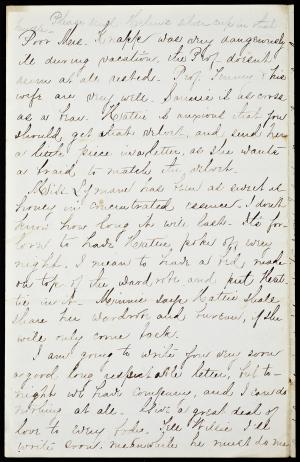 Please send Hattie's silver cup in that
Poor Mrs. Knapp was very dangerously
ill during vacation, the Prof. doesn't
seem at all rested. Prof. & his
wife are very well. Sannie is as cross
as a bear. Hattie is anxious that you
should get that velvet, and send her
a little piece in a letter, as she wants
a braid to match the velvet.
Miss Lyman has been as sweet as
honey in concentrated essence. I don't
know how long it will last. Its for-
lorn to have Hattie, poke off, every
night. I mean to have a bed, made
on top of the, wardrobe and put Hat-
tie in it. Minnie says Hattie shall
share her wardrobe and bureau, if she
will only come back.
I am going to write you very soon
a good long respectable letter, but to-
night we have company, and I can do
nothing at all. Give a great deal of
love to every body. Tell Willie I'll
write soon, meanwhile he must do me